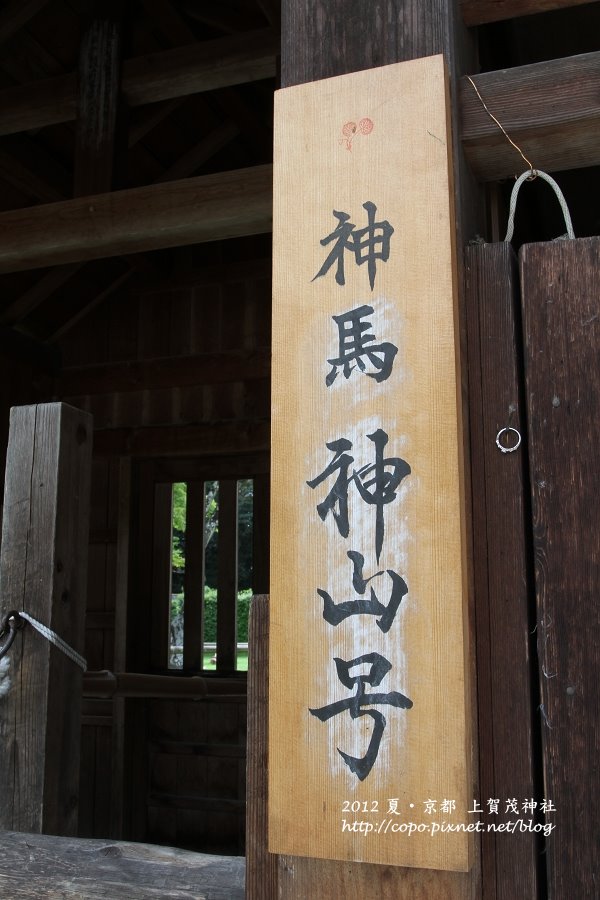 神馬 神山号
2012 夏・京都 上賀茂神社
http://copo.pixnet.net/blog